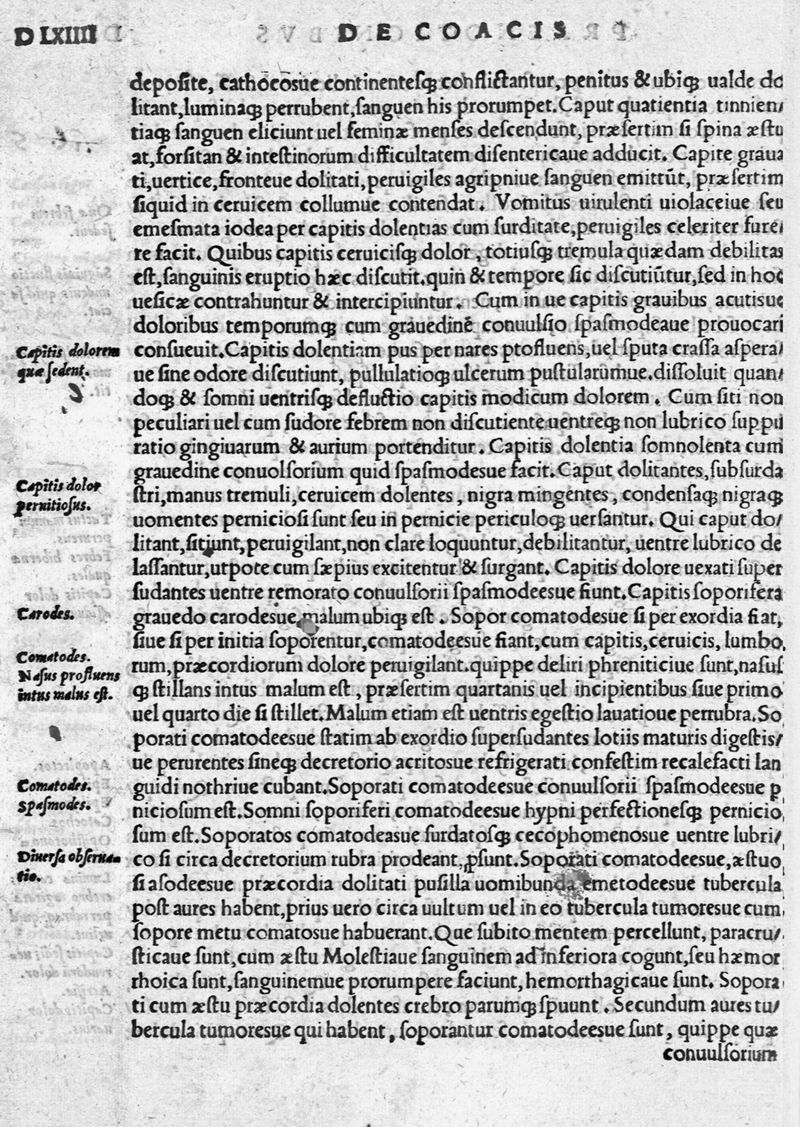 DLXIIII DE COACIS
deposite, cathocosue continentesq; conflictantur, penitus & ubiq; ualde do
litant, luminaq; perrubent, sanguen his prorumpet. Caput quatientia tinnien/
tiaq; sanguen eliciunt uel feminæ menses descendunt, præsertim si spina æstu
at, forsitan & intestinorum difficultatem disentericaue adducit. Capite graua
ti, uertice, fronteue dolitati, peruigiles agripniue sanguen emittũt, præsertim
siquid in ceruicem collumue contendat. Vomitus uirulenti uiolaceiue seu
emesmata iodea per capitis dolentias cum surditate, peruigiles celeriter fure/
re facit. Quibus capitis ceruicisq; dolor, totiusq; tremula quædam debilitas
est, sanguinis eruptio hæc discutit. quin & tempore sic discutiũtur, sed in hoc
uesicæ contrahuntur & intercipiuntur. Cum in ue capitis grauibus acutisue
doloribus temporumq; cum grauedinẽ conuulsio spasmodeaue prouocari
Capitis dolorem
quæ sedent.
consueuit. Capitis dolentiam pus per nares ptofluens, uel sputa crassa aspera/
ue sine odore discutiunt, pullulatioq; ulcerum pustularumue. dissoluit quan/
doq; & somni uentrisq; defluctio capitis modicum dolorem. Cum siti non
peculiari uel cum sudore febrem non discutiente uentreq; non lubrico suppu
ratio gingiuarum & aurium portenditur. Capitis dolentia somnolenta cum
grauedine conuolsorium quid spasmodesue facit. Caput dolitantes, subsurda
Capitis dolor
pernitiosus.
stri, manus tremuli, ceruicem dolentes, nigra mingentes, condensaq; nigraq;
uomentes perniciosi sunt seu in pernicie periculoq; uersantur. Qui caput do/
litant, sitiunt, peruigilant, non clare loquuntur, debilitantur, uentre lubrico de
lassantur, utpote cum sæpius excitentur & surgant. Capitis dolore uexati super
sudantes uentre remorato conuulsorii spasmodeesue fiunt. Capitis soporifera
Carodes.
grauedo carodesue, malum ubiq; est. Sopor comatodesue si per exordia fiat,
siue si per initia soporentur, comatodeesue fiant, cum capitis, ceruicis, lumbo,
Comatodes.
Nasus profluens
intus malus est.
rum, præcordiorum dolore peruigilant. quippe deliri phreniticiue sunt, nasus
q; stillans intus malum est, præsertim quartanis uel incipientibus siue primo
uel quarto die si stillet. Malum etiam est uentris egestio lauatioue perrubra. So
porati comatodeesue statim ab exordio supersudantes lotiis maturis digestis/
ue perurentes sineq; decretorio acritosue refrigerati confestim recalefacti lan
Comatodes.
spasmodes.
guidi nothriue cubant. Soporati comatodeesue conuulsorii spasmodeesue p
niciosum est. Somni soporiferi comatodeesue hypni perfectionesq; pernicio,
sum est. Soporatos comatodeasue surdatosq; cecophomenosue uentre lubri/
Diuersa obserua
tio.
co si circa decretorium rubra prodeant, ꝓsunt. Soporati comatodeesue, æstuo,
si asodeesue præcordia dolitati pusilla uomibunda emetodeesue tubercula
post aures habent, prius uero circa uultum uel in eo tubercula tumoresue cum
sopore metu comatosue habuerant. Que subito mentem percellunt, paracru/
sticaue sunt, cum æstu Molestiaue sanguinem ad inferiora cogunt, seu hæmor
rhoica sunt, sanguinemue prorumpere faciunt, hemorthagicaue sunt. Sopora
ti cum æstu præcordia dolentes crebro parumq; spuunt. Secundum aures tu/
bercula tumoresue qui habent, soporantur comatodeesue sunt, quippe quæ
conuulsorium